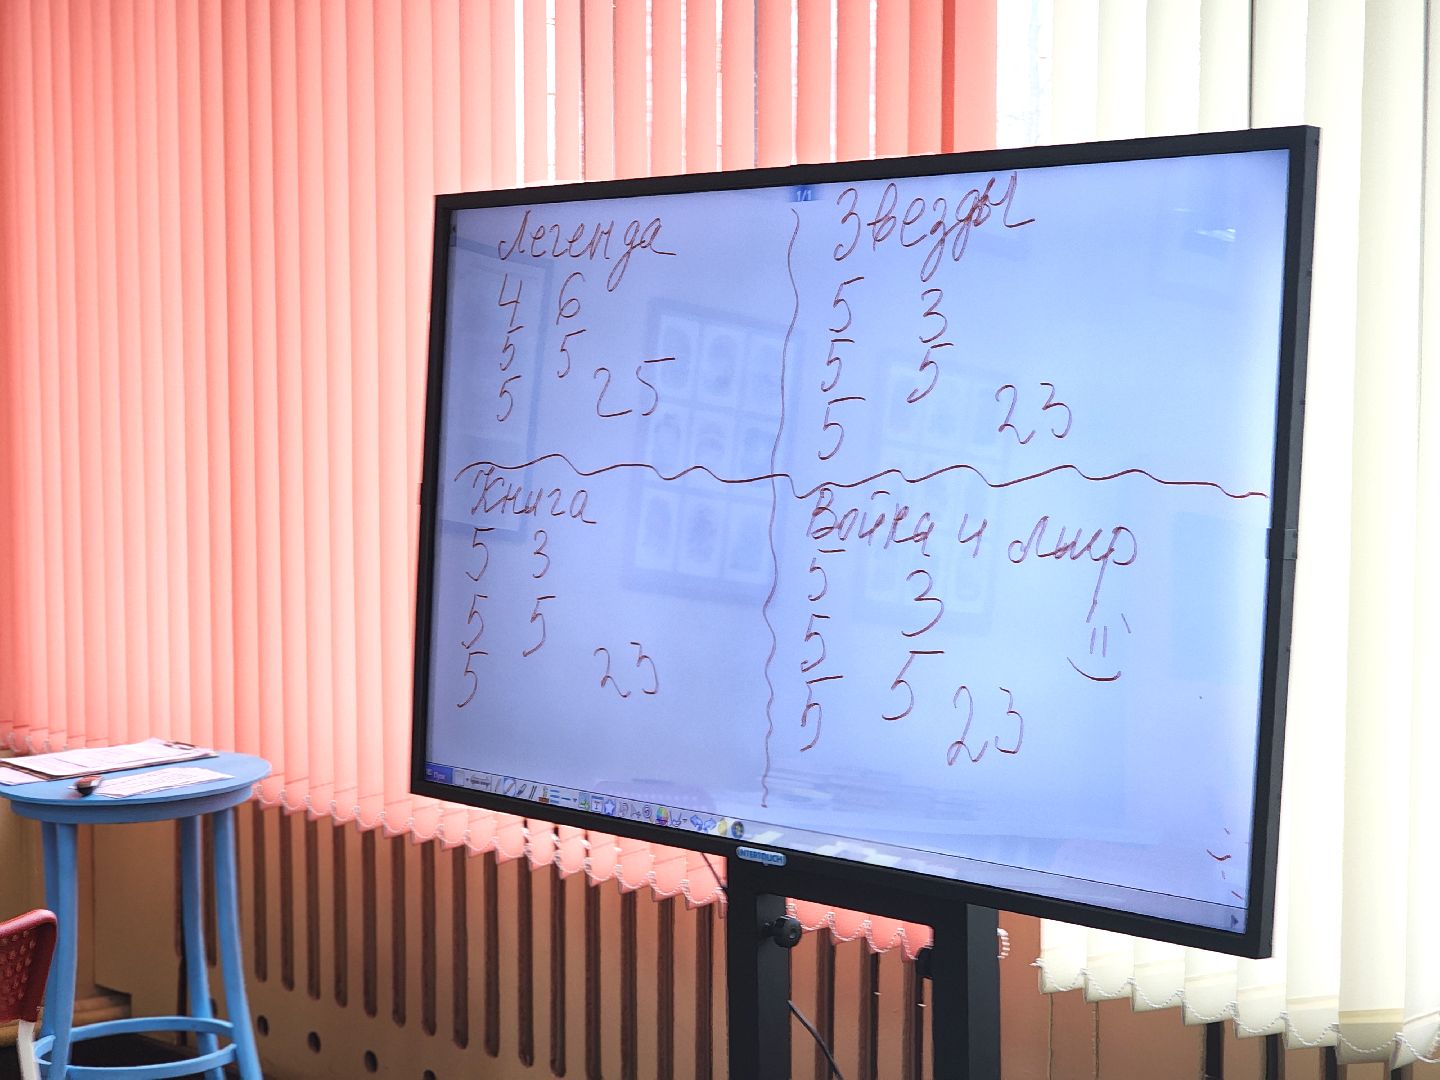 1/1
Легенда
4 6
5 5
5 25
Звезды
5 3
5 5
5 23
Книга
5 3
5 5
5 23
Война и мир
5 3
5 5
5 23
INTERTOUCH